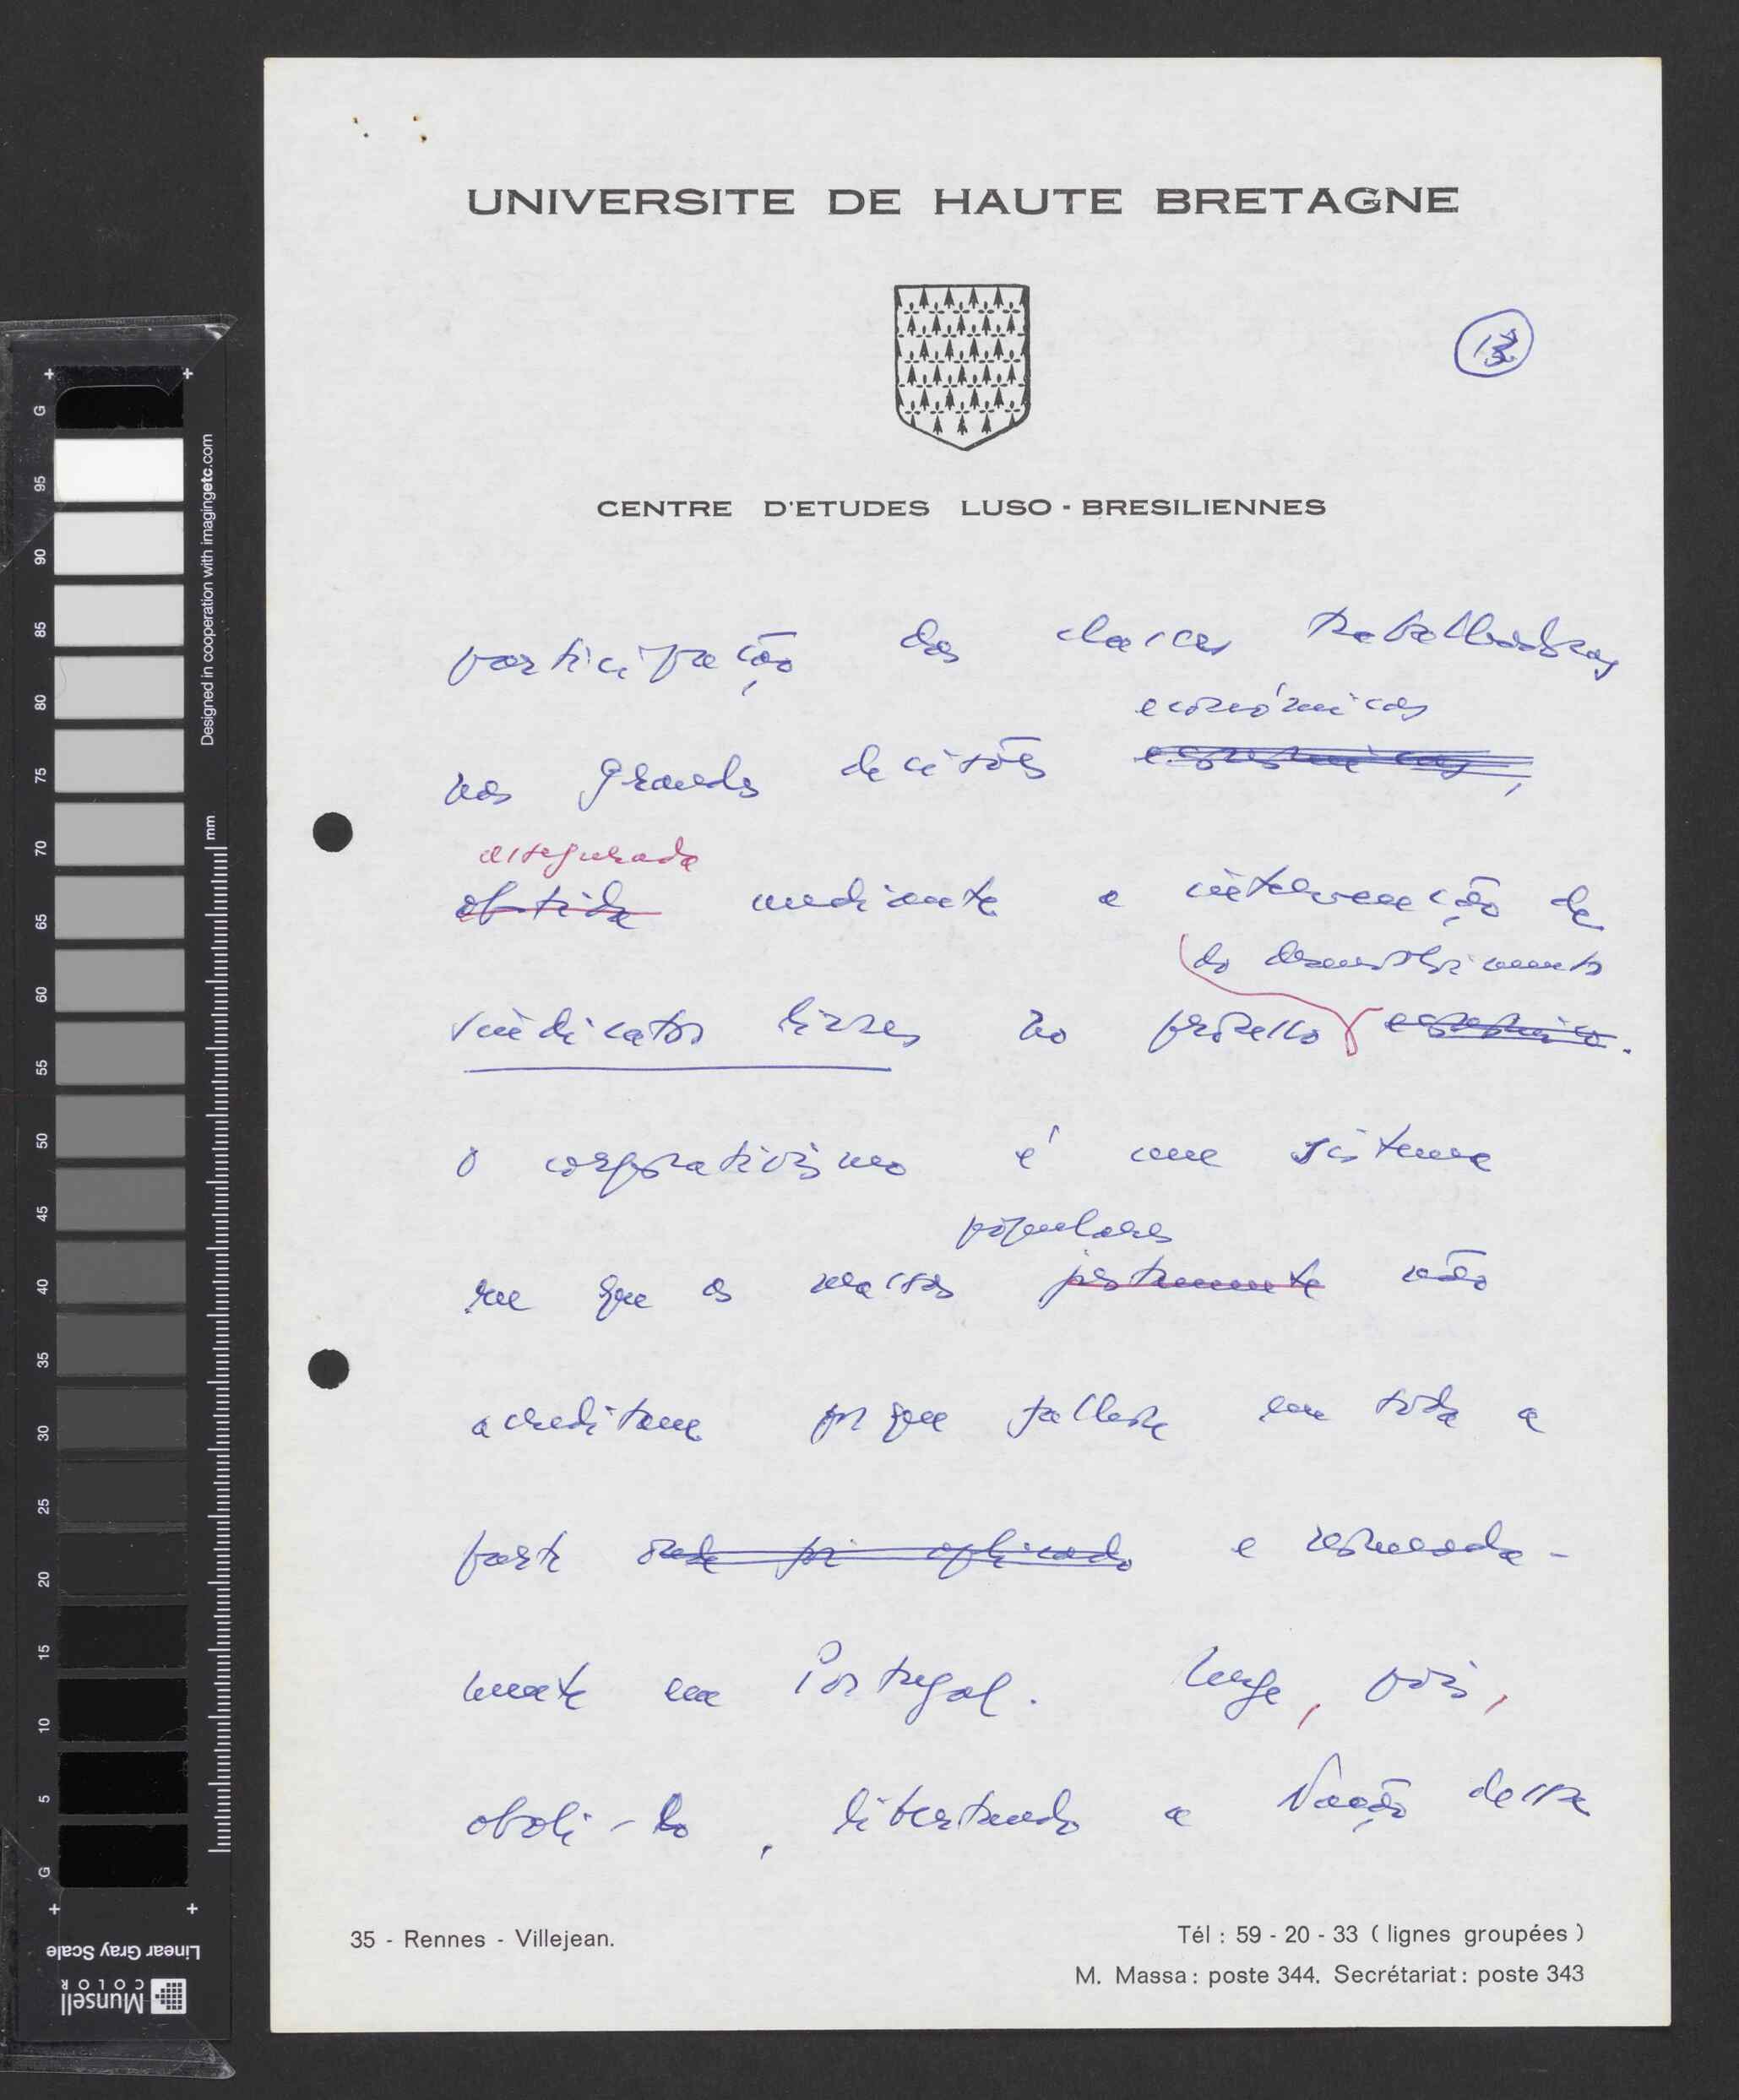 UNIVERSITE DE HAUTE BRETAGNE
13
CENTRE D'ETUDES LUSO - BRESILIENNES
participação das classes trabalhadoras
económicas
nas grandes decisões economicas,
assegurada
obtida mediante a intervenção de
do desenvolvimento
sindicatos livres no processo económico.
O corporativismo é um sistema
populares
em que as massas justamente não
acreditam porque falhou em toda a
parte onde foi aplicado e nomeada-
mente em Portugal. Urge, pois,
aboli-lo, libertando a Nação dessa
35 - Rennes - Villejean.
Tél : 59 - 20 - 33 ( lignes groupées )
M. Massa : poste 344. Secrétariat : poste 343
Designed in cooperation with imagingetc.com
mm
G
95
90
85
80
75
70
65
60
55
50
45
40
35
30
25
20
15
10
5
G
Linear Gray Scale
Munsell
COLOR